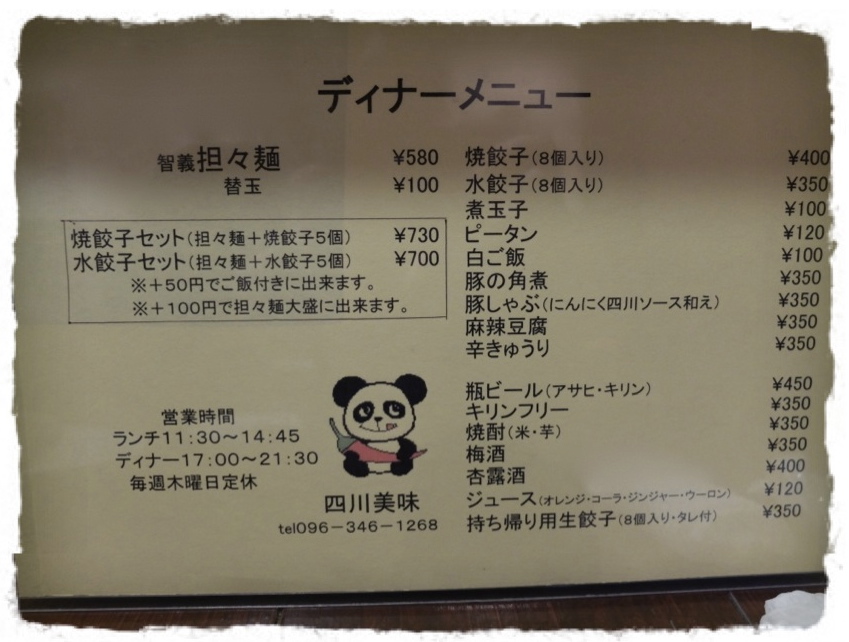 ディナーメニュー
智義担々麺 ¥580
替玉 ¥100
焼餃子セット(担々麺+焼餃子5個) ¥730
水餃子セット(担々麺+水餃子5個) ¥700
※+50円でご飯付きに出来ます。
※+100円で担々麺大盛に出来ます。
営業時間
ランチ11:30~14:45
ディナー17:00~21:30
毎週木曜日定休
四川美味
tel096-346-1268
焼餃子(8個入り) ¥400
水餃子(8個入り) ¥350
煮玉子 ¥100
ピータン ¥120
白ご飯 ¥100
豚の角煮 ¥350
豚しゃぶ(にんにく四川ソース和え) ¥350
麻辣豆腐 ¥350
辛きゅうり ¥350
瓶ビール(アサヒ・キリン) ¥450
キリンフリー ¥350
焼酎(米・芋) ¥350
梅酒 ¥350
杏露酒 ¥400
ジュース(オレンジ・コーラ・ジンジャー・ウーロン) ¥120
持ち帰り用生餃子(8個入り・タレ付) ¥350